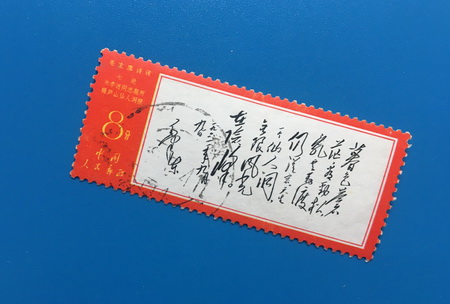 毛主席诗词
七绝
为李进同志题所
摄庐山仙人洞照
8分
中国
人民邮政
暮色苍
茫看劲松
乱云飞渡
仍从容天生
一个仙人洞
无限风光
在险峰
毛泽东
一九六一年九月
九日